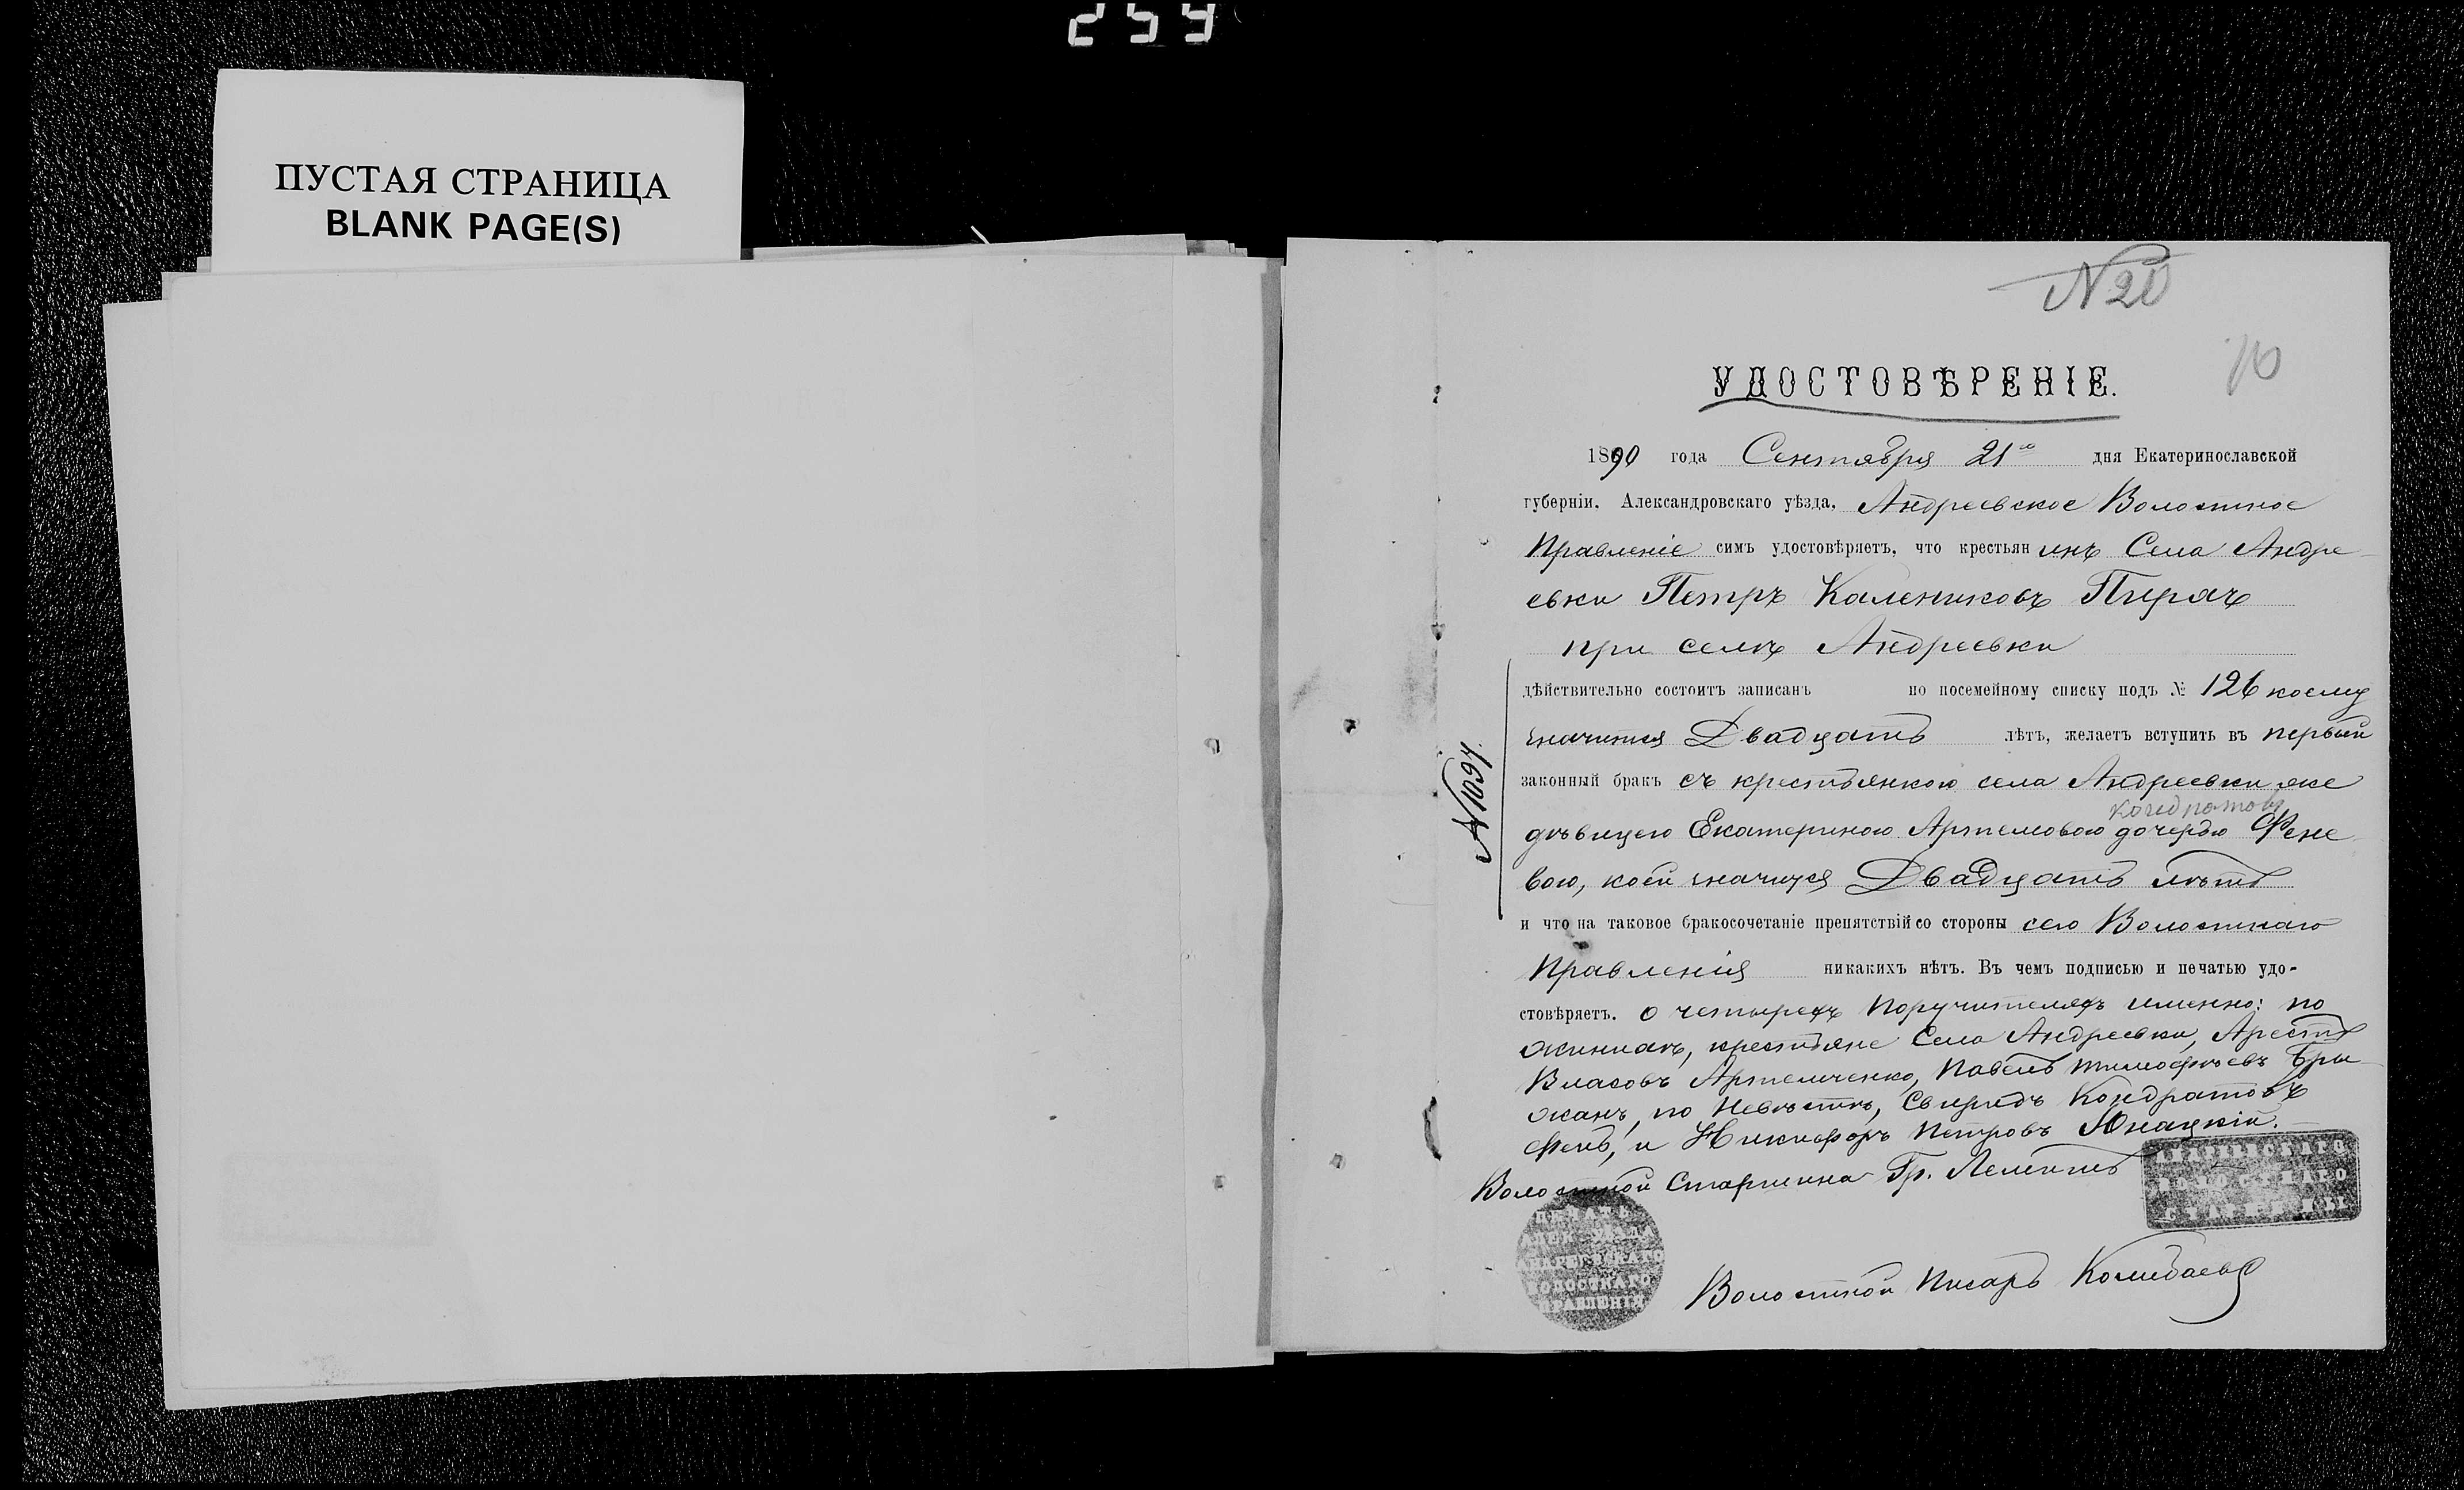 259
ПУСТАЯ СТРАНИЦА
BLANK PAGE(S)
N 20
УДОСТОВѢРЕНІЕ.
1890 года Сентября 21го дня Екатеринославской
губерніи, Александровскаго уѣзда, Андреевское Волостное
Правленіе симъ удостовѣряетъ, что крестьянинъ Села Андре-
евки Петръ Калениковъ Пирач
при селѣ Андреевки
дѣйствительно состоитъ записанъ по посемейному списку подъ № 126 коему
значится Двадцать лѣтъ, желаетъ вступить въ первый
законный бракъ съ крестьянкою села Андреевки же
Кондратов
дѣвицею Екатериною Артемовою дочерью Фене
вою, коей значится Двадцать лѣтъ
и что на таковое бракосочетаніе препятствій со стороны сего Волостнаго
Правленія никакихъ нѣтъ. Въ чемъ подписью и печатью удо-
стовѣряетъ. о четырехъ Поручителяхъ именно: по
женихѣ, крестьяне Села Андреевки, Арестъ
Власовъ Артемченко, Павелъ Тимофѣевъ Бры
жанъ, по Невѣстѣ, Свиридъ Кондратовъ
Фень, и Никифоръ Петровъ Юнацкій.
Волостной Старшина Гр. Лементъ
АНДРЕЕВСКАГО
ВОЛОСТНАГО
СТАРШИНЫ
ПЕЧАТЬ
АЛЕК. УѢЗДА
АНДРЕЕВСКАГО
ВОЛОСТНАГО
ПРАВЛЕНІЯ
Волостной Писарь
N 1097.